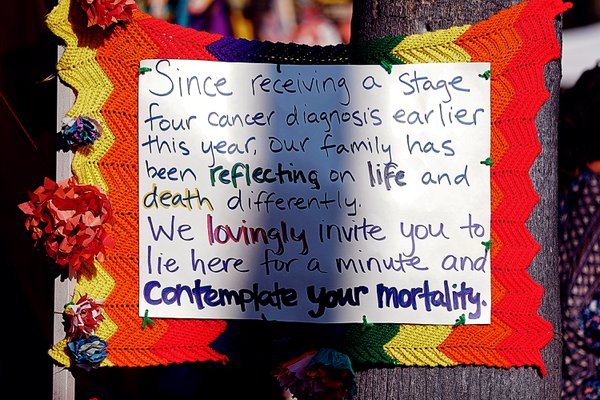 Since receiving a Stage
four cancer diagnosis earlier
this year, our family has
been reflecting on life and
death differently.
We lovingly invite you to
lie here for a minute and
contemplate your mortality.